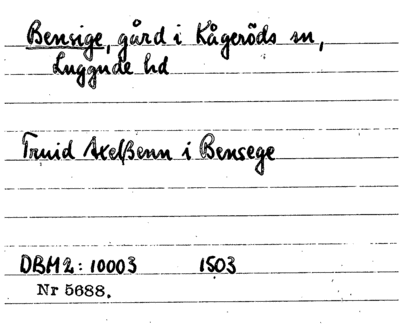 Bensige, gård i Kågeröds sn,
Luggude hd
Truid Axelßenn i Bensege
DBM2: 10003 1503
Nr 5688.